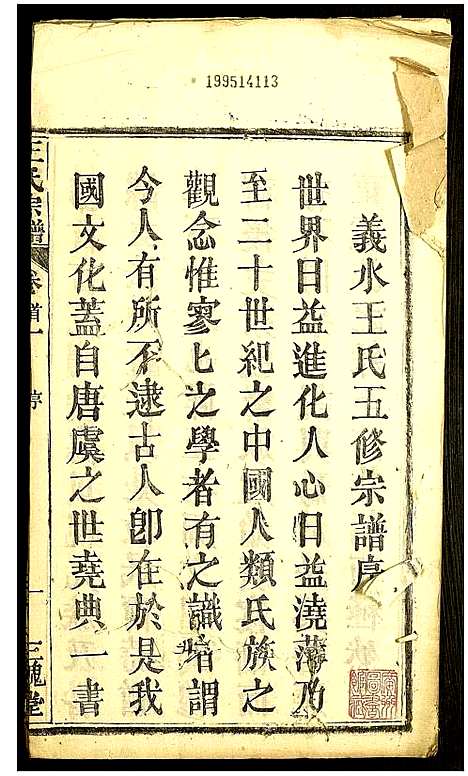 199514113
義水王氏五修宗譜序
世界日益進化人心日益澆薄乃
至二十世紀之中國人類氏族之
觀念惟寥匕之學者有之識者謂
今人有所不逮古人卽在於是我
國文化蓋自唐虞之世堯典一書
王氏宗譜
卷首一
序
一
三槐堂